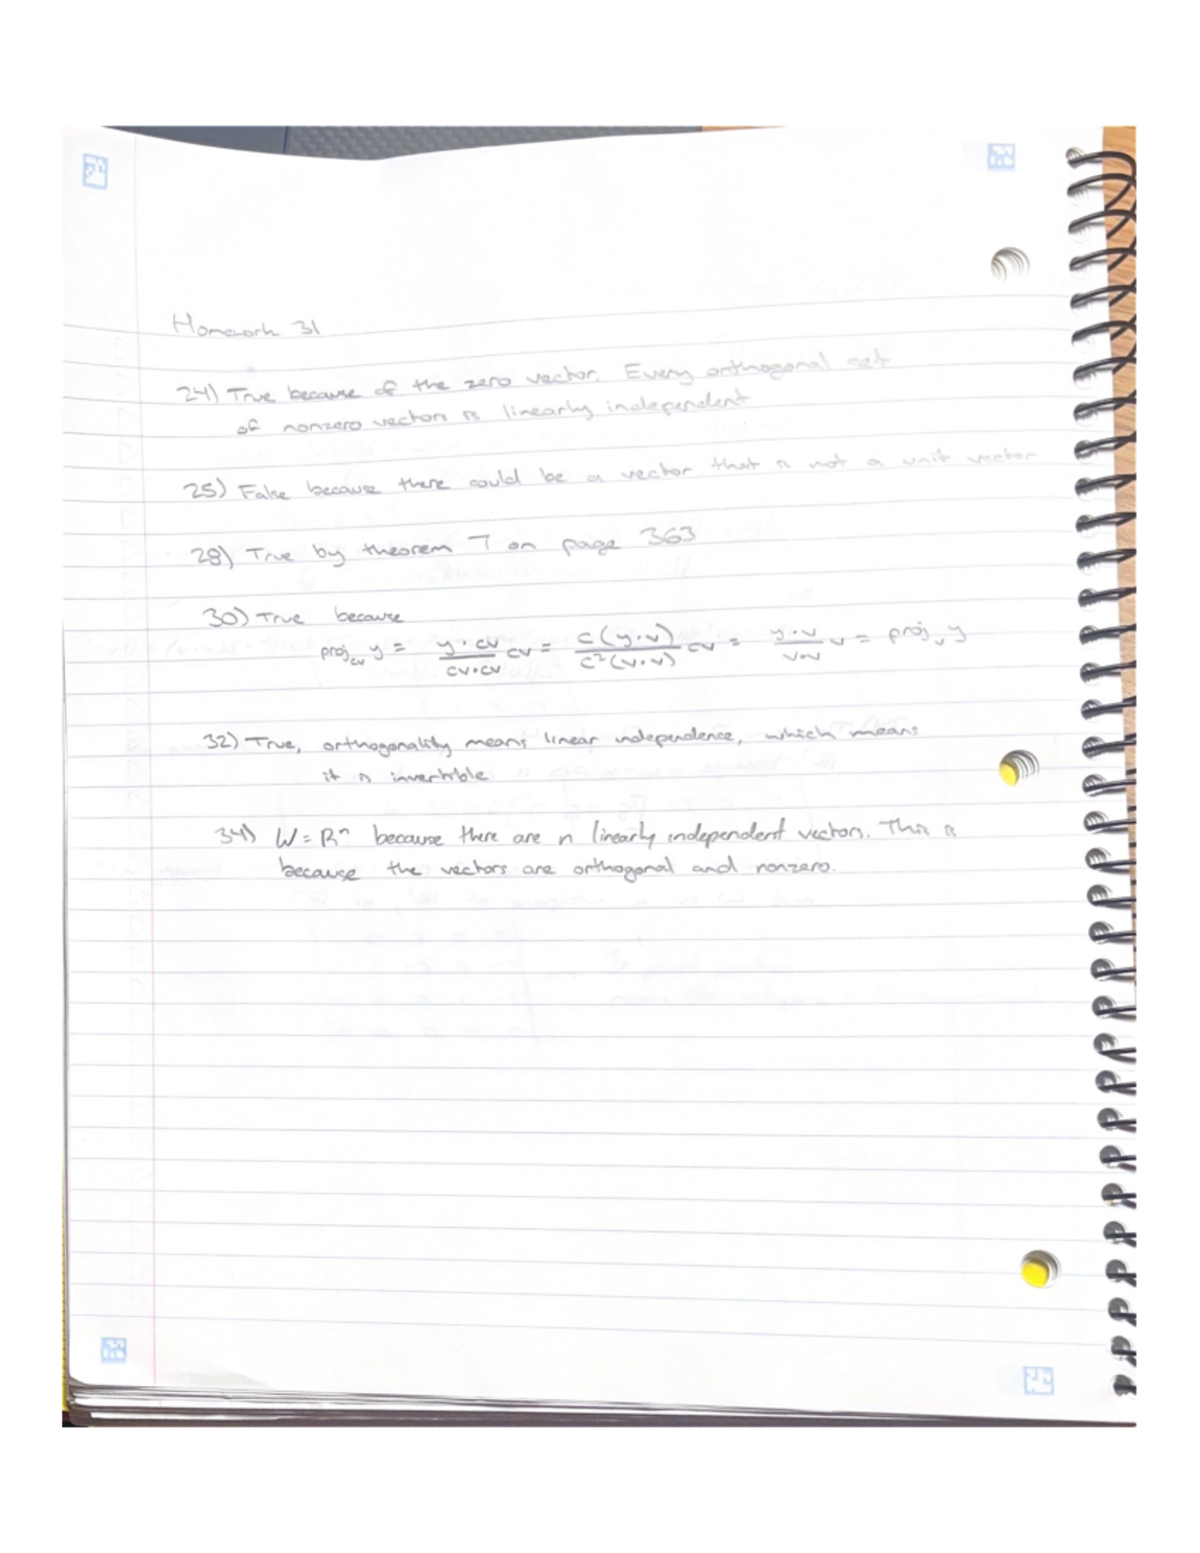 Homework 31
24) True because of the zero vector. Every orthogonal set
of nonzero vectors is linearly independent
25) False because there could be a vector that is not a unit vector
28) True by theorem 7 on page 363
30) True because
proj_cv y = y·cv/cv·cv cv = c(y·v)/c²(v·v) cv = y·v/v·v v = proj_v y
32) True, orthogonality means linear independence, which means
it is invertible
34) W = Rⁿ because there are n linearly independent vectors. This is
because the vectors are orthogonal and nonzero.